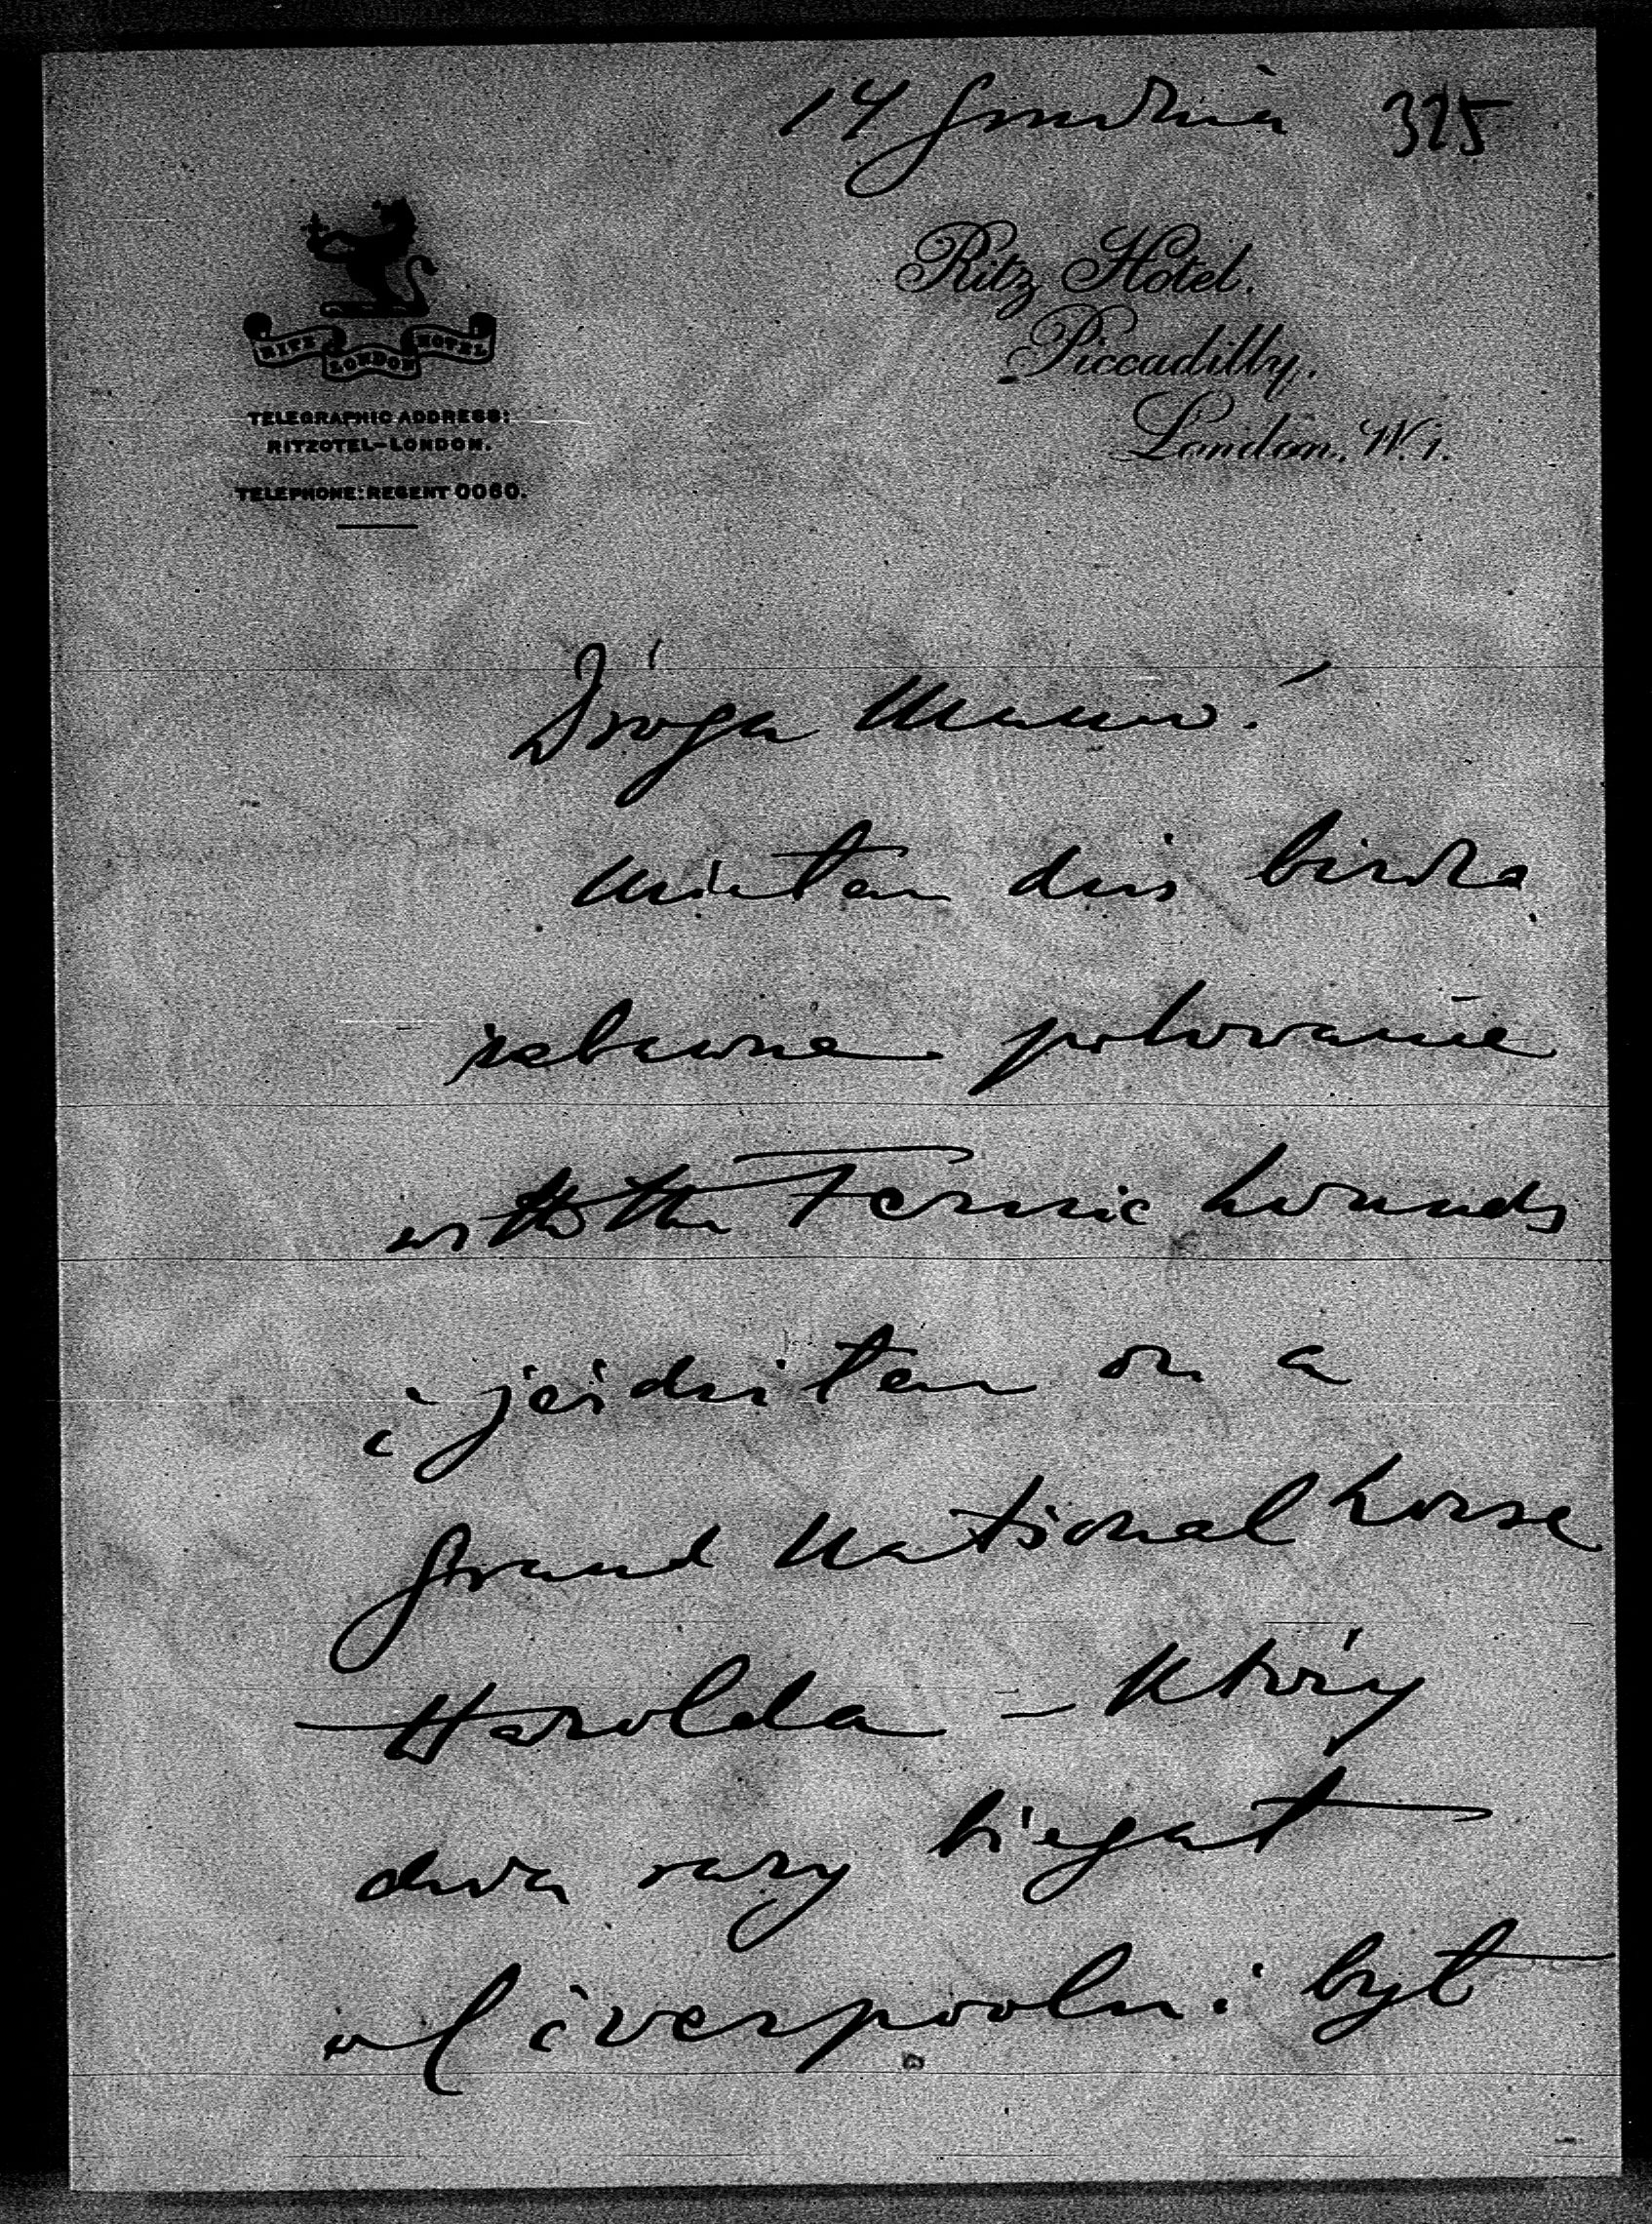 14 Grudnia 325
RITZ HOTEL
LONDON
TELEGRAPHIC ADDRESS:
RITZOTEL-LONDON.
TELEPHONE: REGENT 0060.
Ritz Hotel.
Piccadilly.
London. W.1.
Droga Mamo!
Miałam dziś bardzo
zabawne polowanie
with the Fernie hounds
i jeździłam on a
Grand National horse
Harolda – który
dwa razy biegał
w Liverpoolu i był